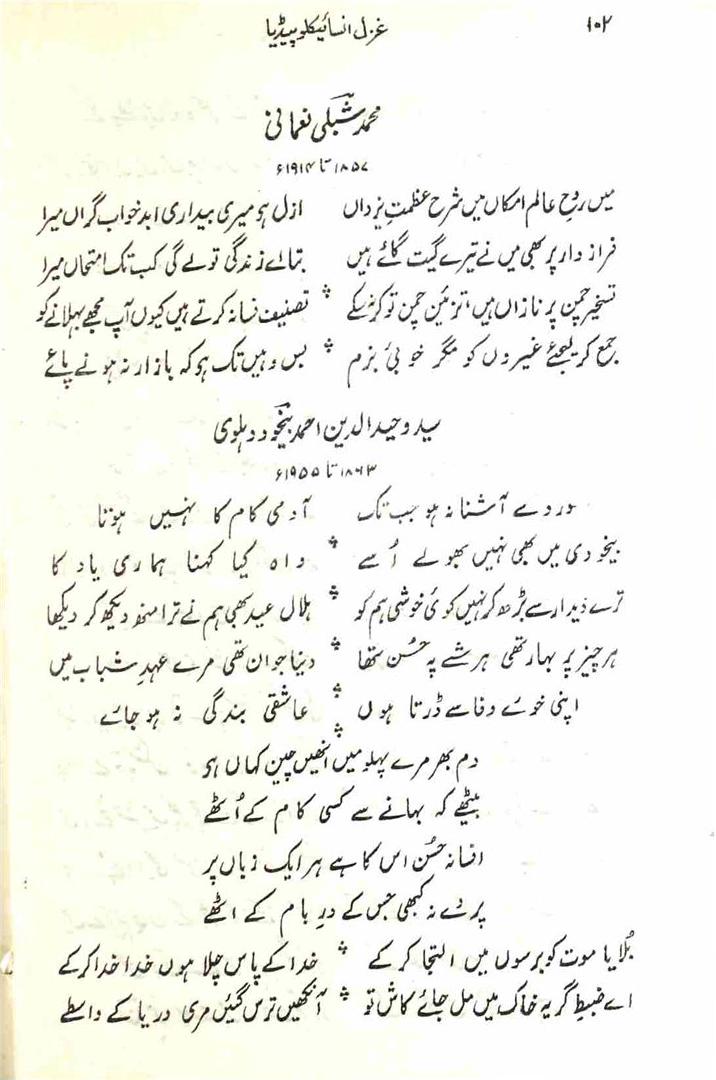 غزل انسائیکلوپیڈیا ۱۰۲
محمد شبلی نعمانی
۱۸۵۷ تا ۱۹۱۴ء
میں روحِ عالم امکاں میں شرح عظمتِ یزداں ازل ہو میری بیداری ابد خواب گراں میرا
فراز دار پر بھی میں نے تیرے گیت گائے ہیں بتا اے زندگی تو لے گی کب تک امتحاں میرا
تسخیر چمن پر نازاں ہیں، تزئین چمن تو کر نہ سکے ؞ تصنیف فسانہ کرتے ہیں کیوں آپ مجھے بہلانے کو
جمع کر لیجئے غیروں کو مگر خوبئ بزم ؞ بس وہیں تک ہو کہ بازار نہ ہونے پائے
سید وحید الدین احمد بیخود دہلوی
۱۸۶۳ تا ۱۹۵۵ء
درد سے آشنا نہ ہو جب تک آدمی کام کا نہیں ہوتا
بیخودی میں بھی نہیں بھولے اُسے ؞ واہ کیا کہنا ہماری یاد کا
ترے دیدار سے بڑھ کر نہیں کوئی خوشی ہم کو ؞ ہلال عید بھی ہم نے ترا منھ دیکھ کر دیکھا
ہر چیز پر بہار تھی ہر شے پہ حُسن تھا ؞ دنیا جوان تھی مرے عہدِ شباب میں
اپنی خوئے وفا سے ڈرتا ہوں ؞ عاشقی بندگی نہ ہو جائے
؞
دم بھر مرے پہلو میں انھیں چین کہاں ہو
بیٹھے کہ بہانے سے کسی کام کے اُٹھے
افسانہ حُسن اس کا ہے ہر ایک زباں پر
پردے نہ کبھی جس کے درِ بام کے اٹھے
بُلایا موت کو برسوں میں التجا کر کے ؞ خدا کے پاس چلا ہوں خدا خدا کر کے
اے ضبطِ گریہ خاک میں مل جائے کاش تو ؞ آنکھیں ترس گئیں مری دریا کے واسطے